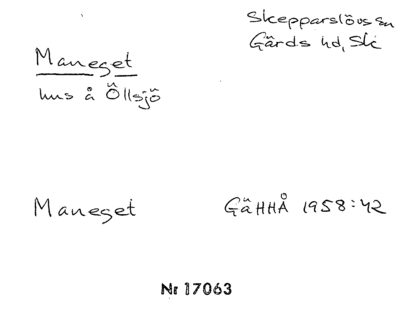 Skepparslövs sn
Gärds hd, Sk
Maneget
hus å Öllsjö
Maneget
GäHHÅ 1958:42
Nr 17063